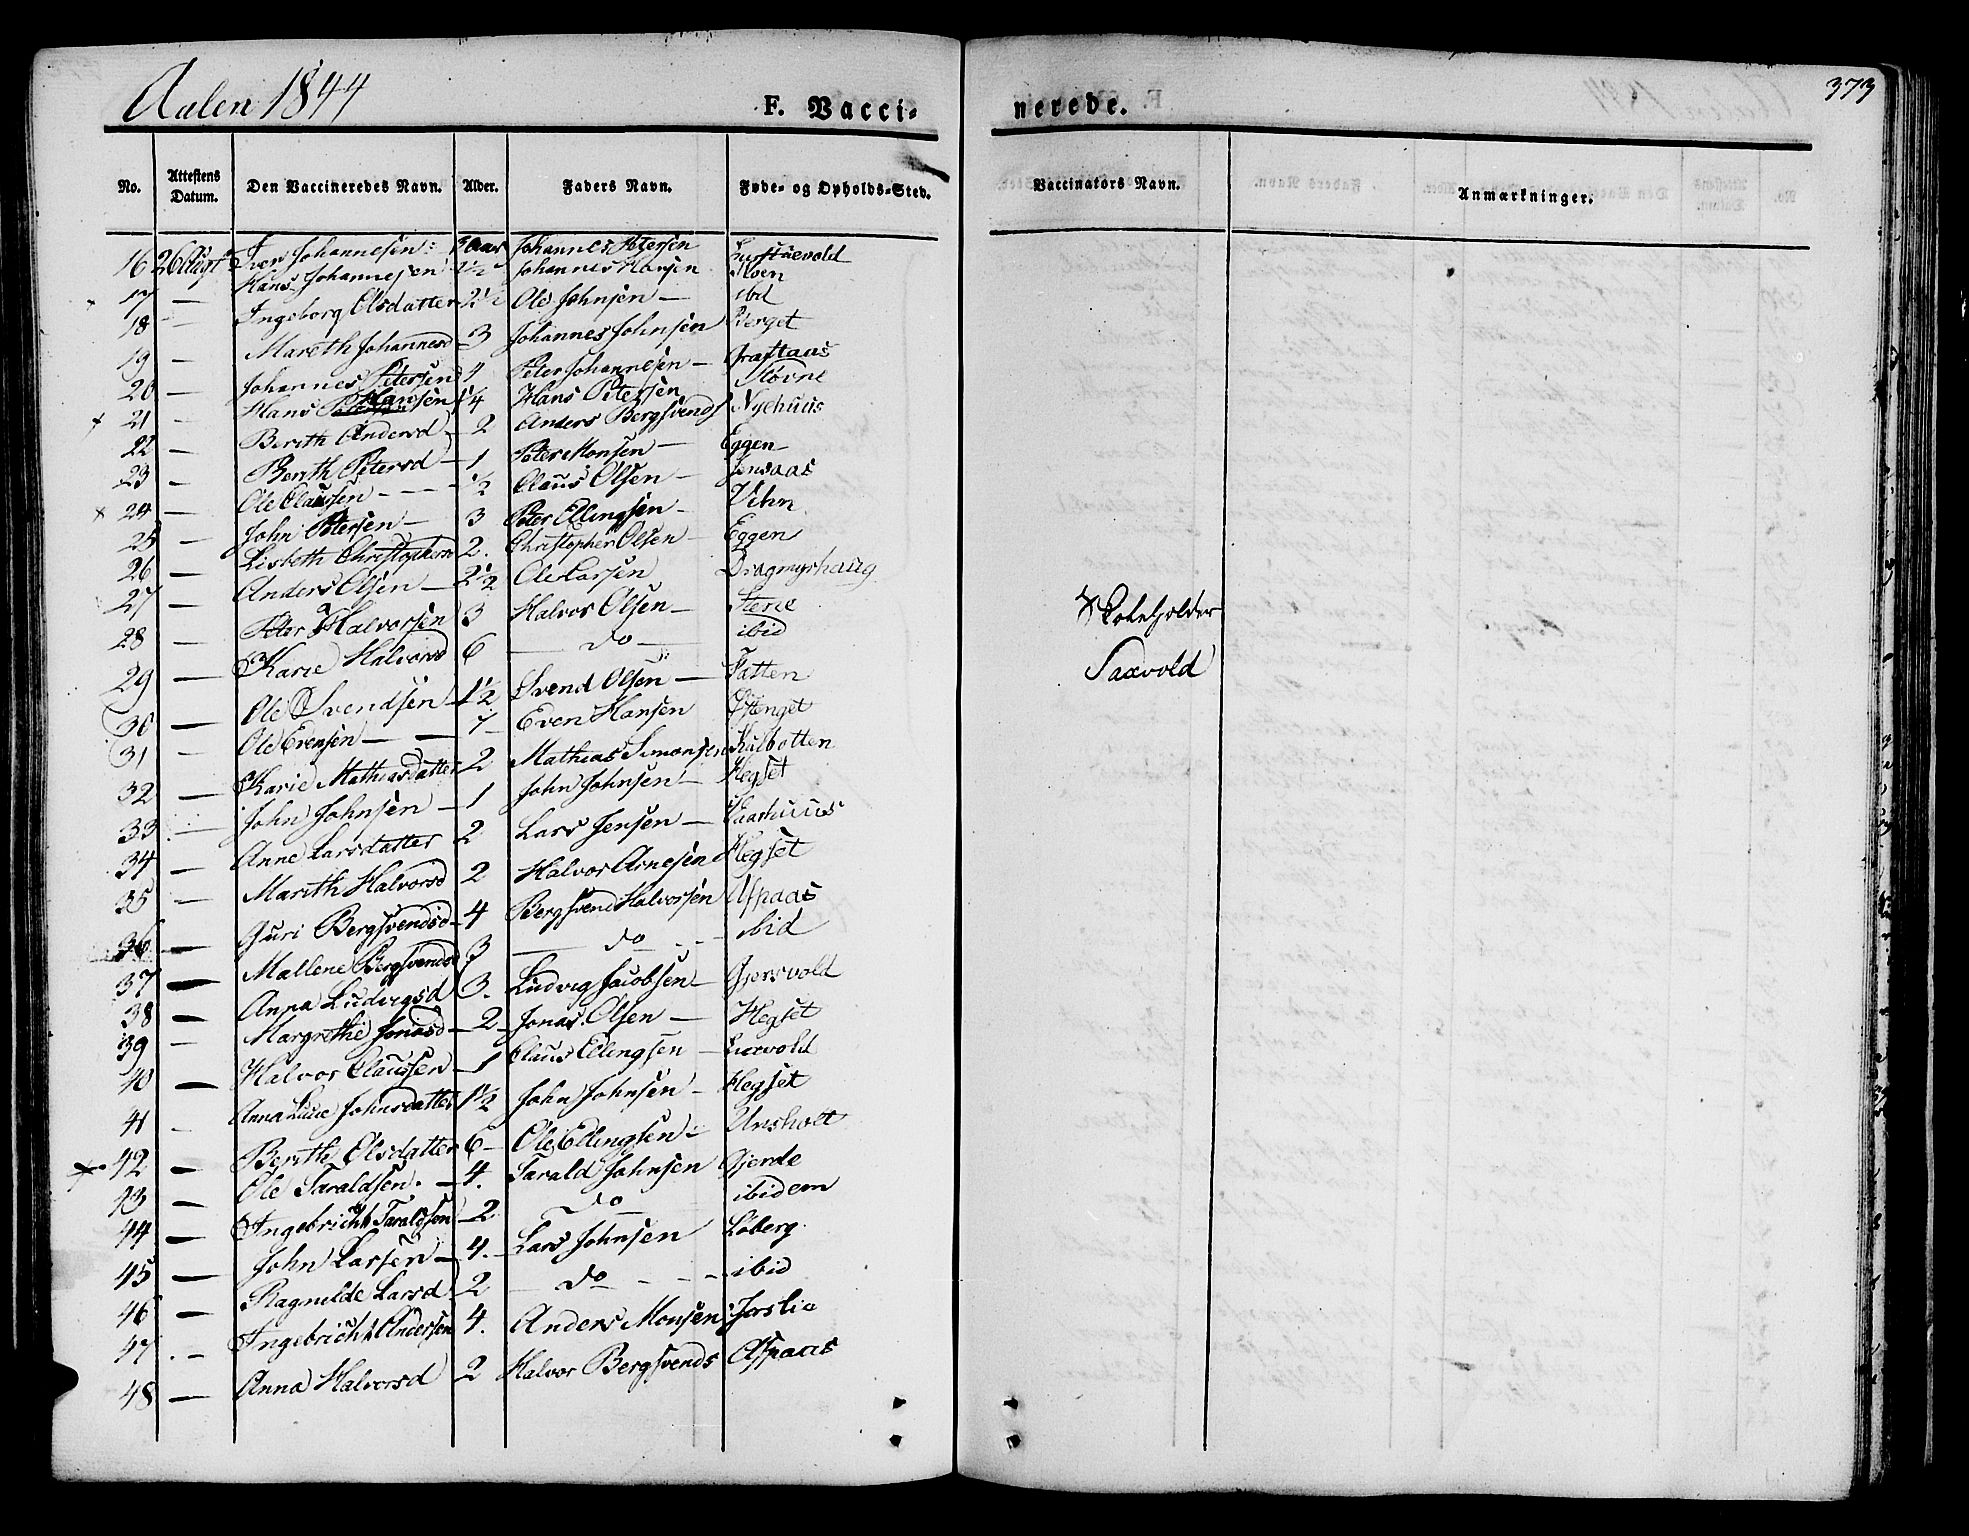 Aalen 1844
F. Vacci-
nerede.
373
No. Attestens Datum. Den Vaccineredes Navn. Alder. Faders Navn. Føde- og Opholds-Sted. Vaccinators Navn. Anmærkninger.
16 26 Augt Iver Johannesen 3 Aar Johannes Petersen
17 — Hans Johannesen 1½ Johannes Hansen Moen
18 — Ingeborg Olsdatter 2½ Ole Johnsen — ibd
19 — Mareth Johannesd 3 Johannes Johnsen Berget
20 — Johannes Petersen 4 Peter Johannesen — Graftaas
21 — Hans Hansen 1¼ Hans Petersen Kløvne
22 — Berith Andersd 2 Anders Bergsvends Nyehuus
23 — Berith Petersd — 1 Peter Monsen — Eggen
24 — Ole Claussen — ½ Claus Olsen — Jensaas
25 — John Petersen — 3 Peter Ellingsen — Vehn
26 — Lisbeth Christophersd 2. Christopher Olsen — Eggen
27 — Anders Olsen — 2½ Ole Larsen Dragmyrhaug
28 — Peter Halvorsen 3 Halvor Olsen — Stene
29 — Karie Halvorsd 6 — do — ibid
30 — Ole Svendsen 1½ Svend Olsen — Tatten
31 — Ole Evensen — 7 Even Hansen Østenget
32 — Karie Mathiasdatter 2 Mathias Simonsen Kulbotten
33 — John Johnsen — 1 John Johnsen — Hegset
34 — Anne Larsdatter 2 Lars Jensen — Vaarhuus
35 — Marith Halvorsd 2 Halvor Arnesen Hegset
36 — Guri Bergsvendsd — 4 Bergsvend Halvorsen Aspaas
37 — Mallene Bergsvendsd 3 — do — ibid
38 — Anna Ludvigsd 3. Ludvig Jacobsen — Gjersvold
39 — Margrethe Jonasd — 2 — Jonas Olsen — Hegset
40 — Halvor Claussen — 1 Claus Ellingsen — Luxvold
41 — Anna Lucie Johnsdatter 1½ John Johnsen — Hegset
42 — Berith Olsdatter 6 — Ole Ellingsen — Unsholt
43 — Ole Taraldsen. — 4. Tarald Johnsen Gjerde
44 — Ingebricht Taraldsen 2 do ibidem
45 — John Larsen — 4. — Lars Johnsen Løberg
46 — Ragnilde Larsd 2 — do — ibid
47 . — Ingebricht Andersen 4. Anders Monsen Jorslie
48 — Anna Halvorsd 2 Halvor Bergsvends Aspaas
Skoleholder
Saxvold